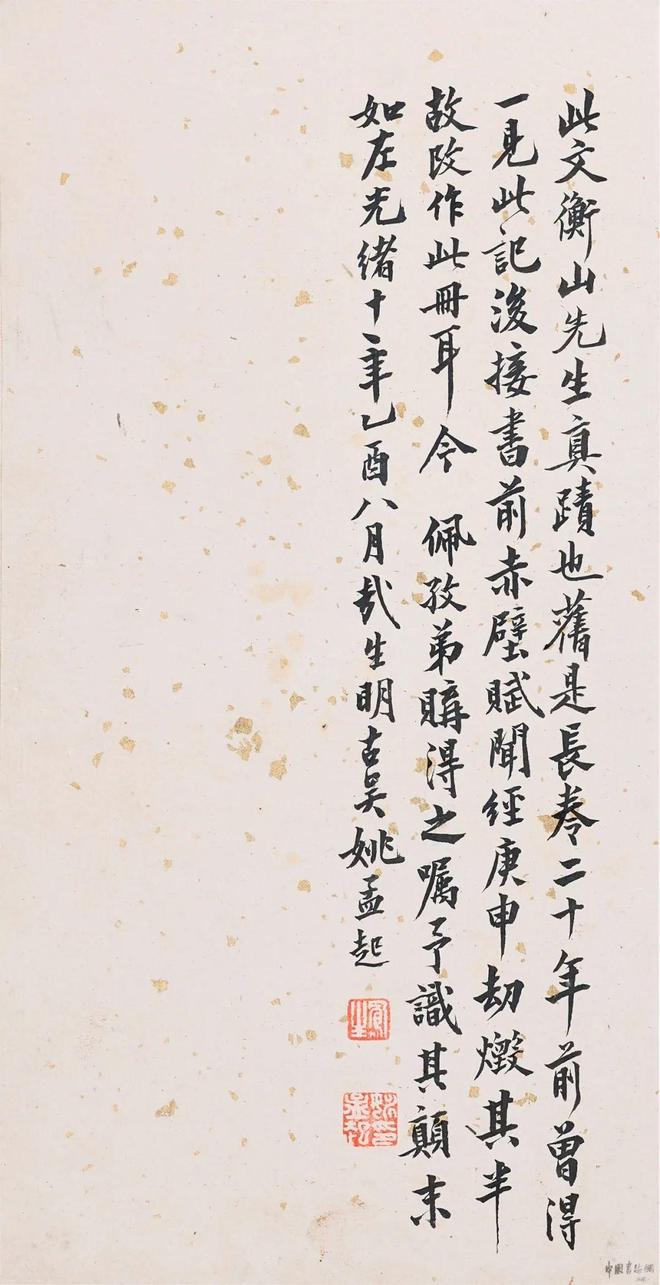 此文衡山先生真蹟也舊是長卷二十年前曾得
一見此記後接書前赤壁賦聞經庚申劫燬其半
故改作此冊耳今 佩孜弟購得之嘱予識其顛末
如左光緒十一年乙酉八月哉生明古吳姚孟起
中國書法網